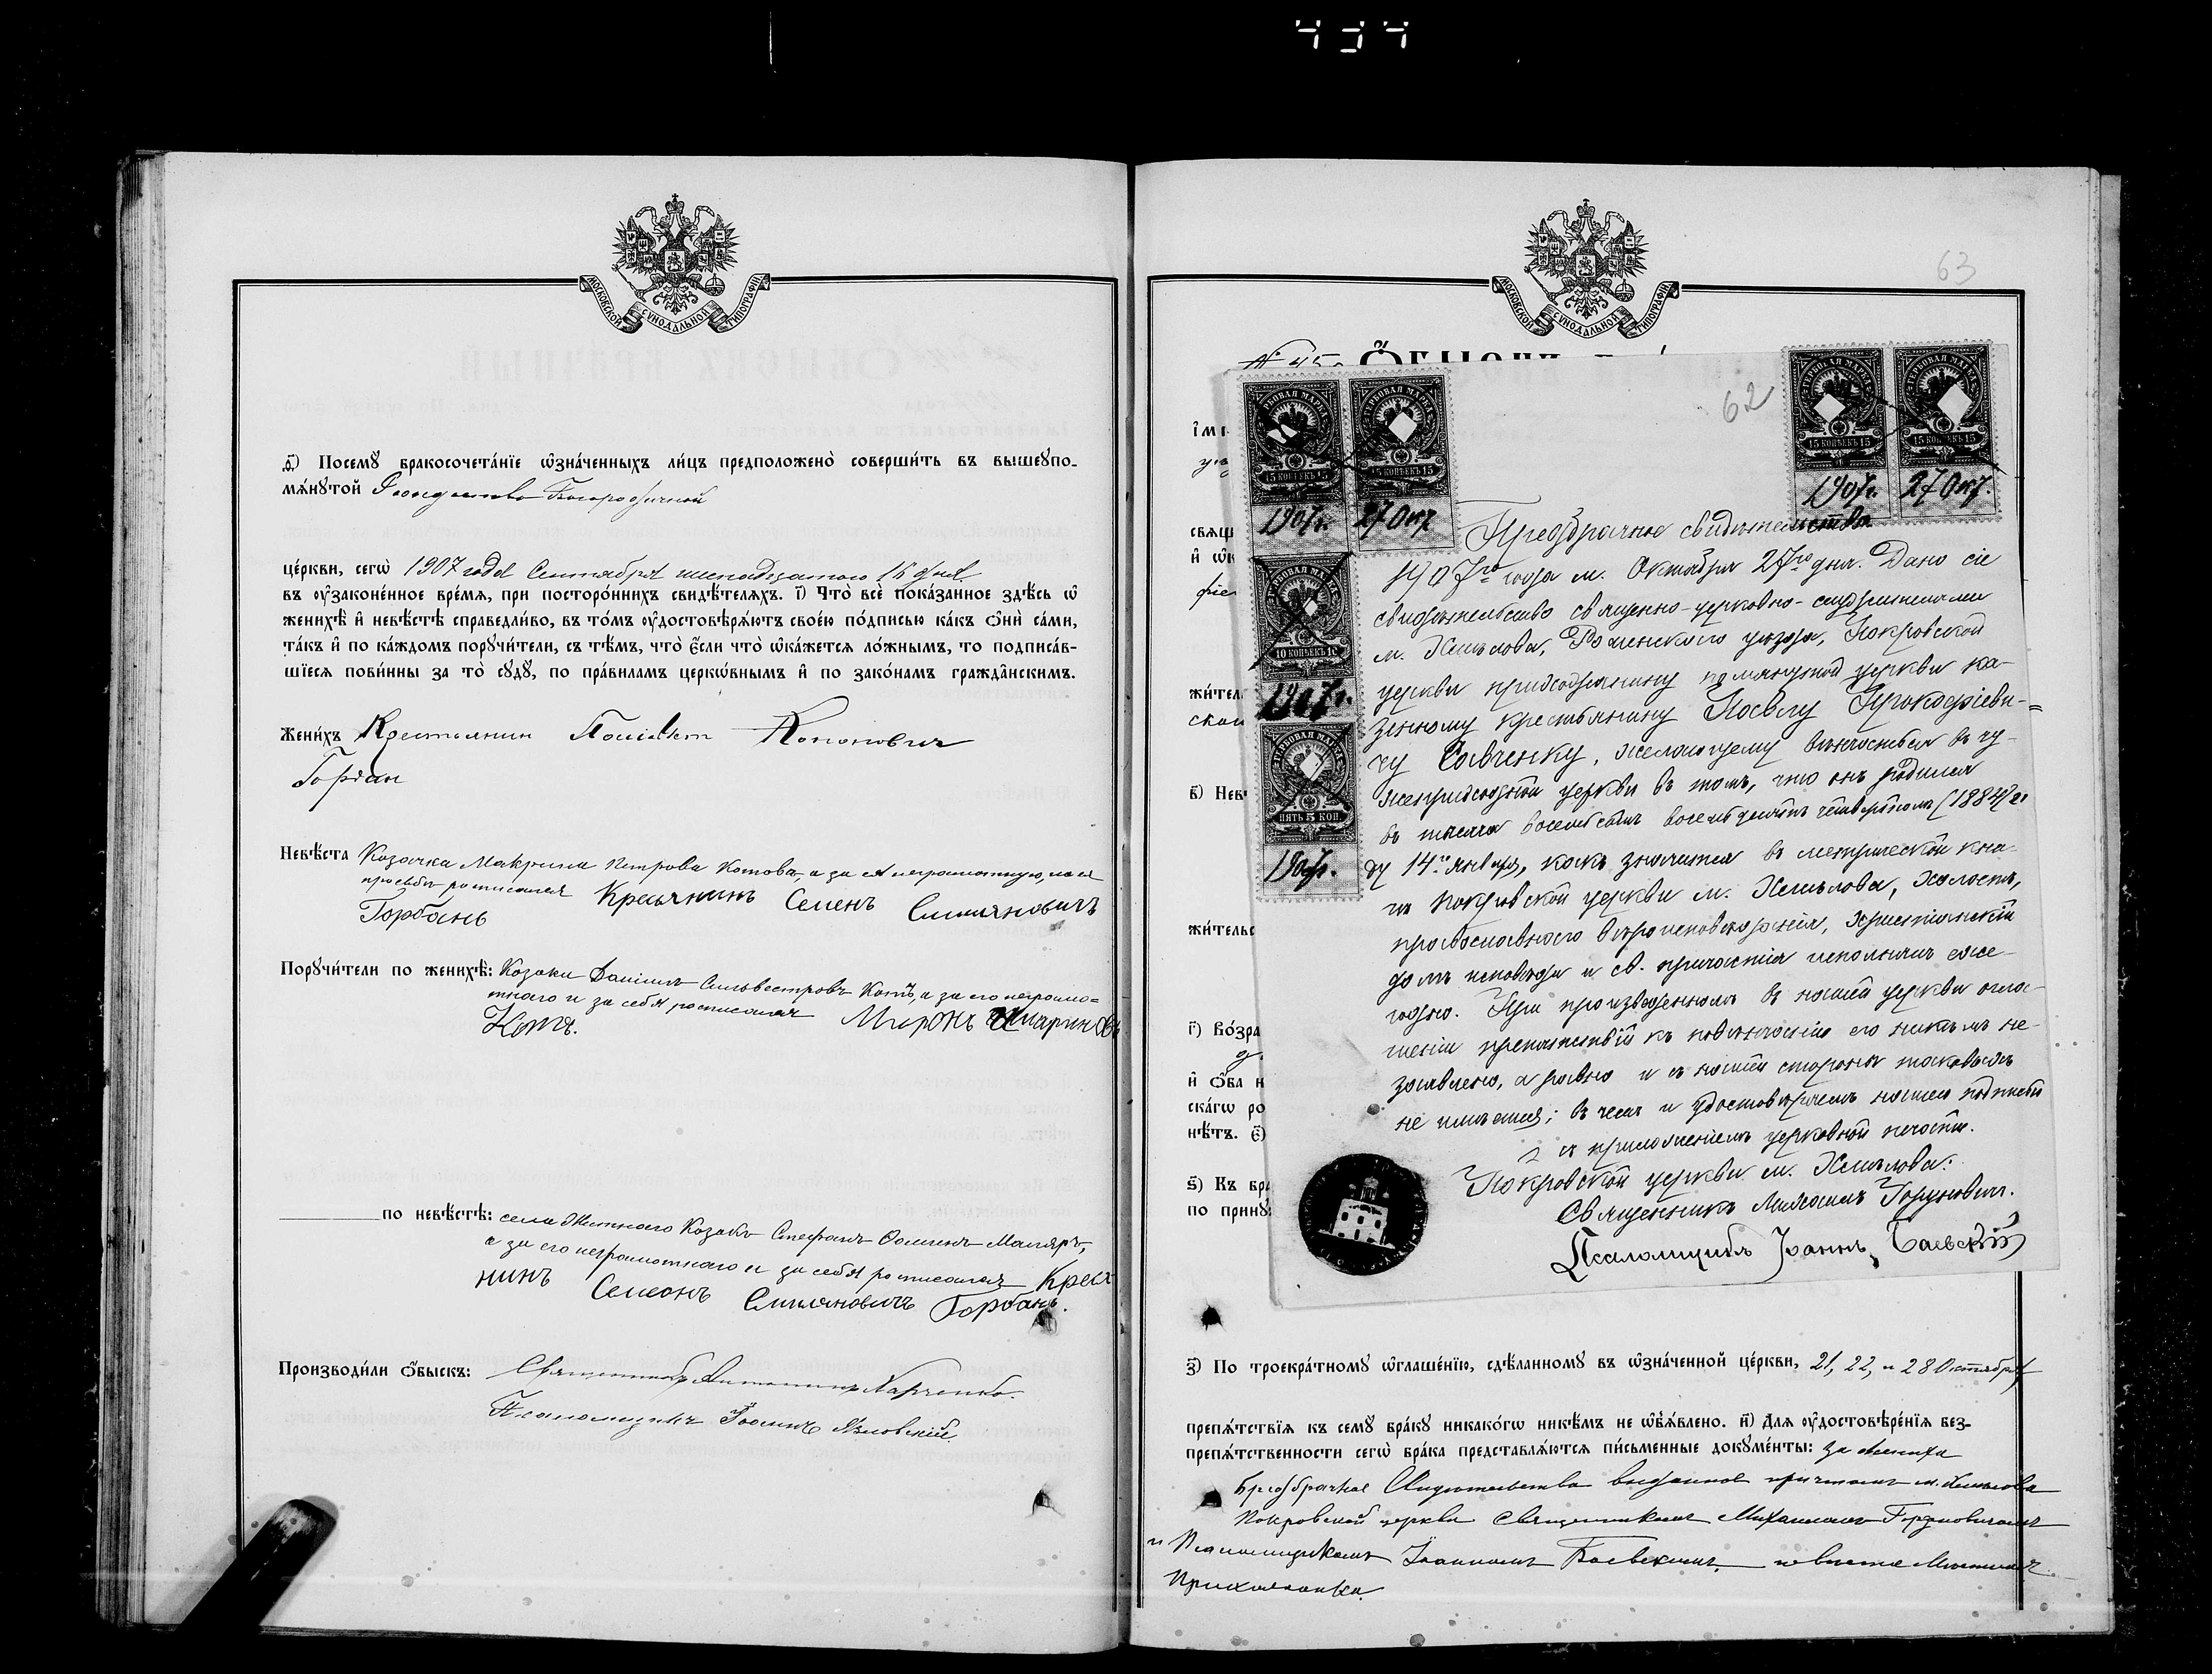 434
МОСКОВСКОЙ СѴНОДАЛЬНОЙ ТИПОГРАФІИ
ѳ҃) Посемꙋ бракосочета́нїе ѡ҆зна́ченныхъ ли́цъ предположено̀ соверши́ть въ вышеꙋпо-
мѧ́нꙋтой Рождество Богородичной
це́ркви, сегѡ̀ 1907 года Сентября шестнадцатого 16 дня
въ ᲂу҆зако́ненное вре́мѧ, при посторо́ннихъ свидѣ́телѧхъ. і҃) Что̀ всѐ пока́занное здѣ́сь ѡ҆
женихѣ̀ и҆ невѣ́стѣ справедли́во, въ то́мъ ᲂу҆достовѣрѧ́ютъ свое́ю по́дписью ка́къ ѻ҆нѝ са́ми,
та́къ и҆ по ка́ждомъ порꙋчи́тели, съ тѣ́мъ, что̀ є҆́сли что̀ ѡ҆ка́жетсѧ ло́жнымъ, то подписа́в-
шїесѧ пови́нны за то̀ сꙋдꙋ̀, по пра́виламъ церко́внымъ и҆ по зако́намъ гражда̂нскимъ.
Жени́хъ Крестьянин Кононович
Горбан
Невѣ́ста Козачка Макрина Петрова Котова, а за ея неграмотную, по ея
просьбѣ росписался Кресьянинъ Семенъ Симияновичъ
Горбань
Порꙋчи́тели по женихѣ̀: Козаки Даніилъ Сильвестровъ Котъ, а за его неграмо-
тнаго и за себя росписался Миронъ
Котъ.
по невѣ́стѣ: села Житнаго Козакъ Стефанъ Фоминъ Маляръ,
а за его неграмотнаго и за себя росписался Крест
нинъ Семеонъ Симияновичъ Горбань.
Производи́ли ѻ҆́быскъ: Священникъ Антонинъ Харченко.
Псаломщикъ Іоаннъ Язловскій.
МОСКОВСКОЙ СѴНОДАЛЬНОЙ ТИПОГРАФІИ
63
№ 45
62
ГЕРБОВАЯ МАРКА
15 КОПѢЕКЪ 15
1907г. 27 Окт.
ГЕРБОВАЯ МАРКА
15 КОПѢЕКЪ 15
1907г. 27 Окт.
10 КОПѢЕКЪ 10
1907г.
ГЕРБОВАЯ МАРКА
ПЯТЬ 5 КОП.
1907г.
Предбрачное свидѣтельство
1907го года м. Октября 27го дня. Дано сіе
свидѣтельство священно-церковно-служителями
м. Хмѣлова, Роменского уѣзда, Покровской
церкви прихожанину помянутой церкви ка-
зенному крестьянину Павлу Прокофіеви-
чу Савченку, желающему вѣнчаться въ чу-
жеприходной церкви въ томъ, что онъ родился
въ тысяча восемьсотъ восемьдесятъ четвертомъ (1884) го-
ду 14го января, какъ значится въ метрической кни-
гѣ Покровской церкви м. Хмѣлова, холостъ,
православного вѣроисповѣданія, христіанскій
долгъ исповѣди и св. причастія исполнялъ еже-
годно. При произведенномъ въ нашей церкви огла-
шеніи препятствій къ повѣнчанію его никѣмъ не
заявлено, а равно и съ нашей стороны таковыхъ
не имѣется; въ чемъ и удостовѣряемъ нашею подписью
съ приложеніемъ церковной печати.
Покровской церкви м. Хмѣлова:
Священникъ Михаилъ Гордковичъ.
Псаломщикъ Іоаннъ Баевскій
з҃) По троекра́тномꙋ ѡ҆глаше́нїю, сдѣ́ланномꙋ въ ѡ҆зна́ченной це́ркви, 21, 22, и 28 Октября
препѧ́тствїѧ къ семꙋ̀ бра́кꙋ никако́гѡ никѣ́мъ не ѡ҆б̾ѧ́влено. и҃) Длѧ ᲂу҆достовѣре́нїѧ без-
препѧ́тственности сегѡ̀ бра́ка представлѧ́ютсѧ пи́сьменные докꙋме́нты: за жениха
Предбрачное Свидѣтельство выданное причтомъ м. Хмѣлова
Покровской церкви Священникомъ Михаиломъ
и Псаломщикомъ Іоанномъ Баевскимъ, невѣста Мѣстная
Прихожанка.